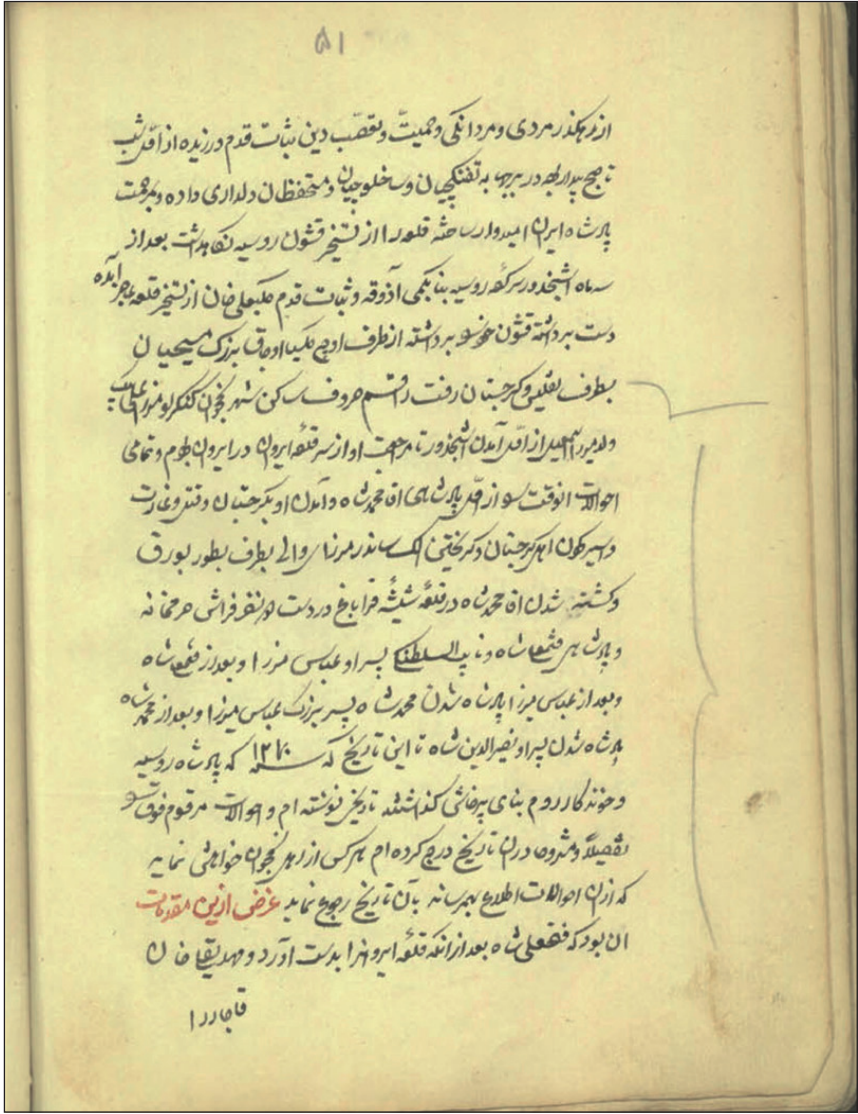 ۵۱
از رهگذر مردی و مردانگی و حمیت و تعصب دین ثبات قدم ورزیده از اول شب
تا صبح بیدار در برجها به تفنگچیان و ساخلوچیان و مستحفظان دلداری داده و بمرحمت
پادشاه ایران امیدوار ساخته قلعه را از تسخیر قشون روسیه نگاهداشت بعد از
سه ماه اشپخدور سرکرده روسیه بنا بکمی آذوقه و ثبات قدم کلبعلی خان از تسخیر قلعه عاجز آمده
دست برداشته قشون خود برداشته از طرف اوچ کلیسا اوجاق بزرگ مسیحیان
بطرف تفلیس و گرجستان رفت راقم حروف ساکن شهر نخجوان کنگرلو میرزا علی بیک
ولد میرزا اسمعیل از اول آمدن اشپخدور تا مراجعت او از سر قلعه ایروان در ایروان بودم و تمامی
احوالات انوقت از اول پادشاهی اقا محمد شاه و آمدن او بگرجستان و قتل و غارت
و اسیر کردن اهل گرجستان و گریختن الکساندر میرزای والی بطرف بطور بورق
و کشته شدن اقا محمد شاه در قلعه شیشه قراباغ در دست دو نفر فراش خرمخانه
و پادشاهی فتحعلیشاه و نایب السلطنگی پسر او عباس میرزا و بعد از فتحعلیشاه
و بعد از عباس میرزا پادشاه شدن محمد شاه پسر بزرگ عباس میرزا و بعد از محمد شاه
پادشاه شدن پسر او نصیرالدین شاه تا این تاریخ که سنه ۱۲۷۰ که پادشاه روسیه
و خوندکار روم بنای پرخاشی گذاشتند تاریخی نوشته ام و احوالات مرقوم فوق
تفصیلاً و مشروحا در ان تاریخ درج کرده ام هر کس از اهل نخجوان خواهش نماید
که از ان احوالات اطلاع بهمرساند بان تاریخ رجوع نماید غرض ازین مقدمات
ان بود که فتحعلی شاه بعد از انکه قلعه ایروانرا بدست اورد و مهدیقلی خان
قاجار را